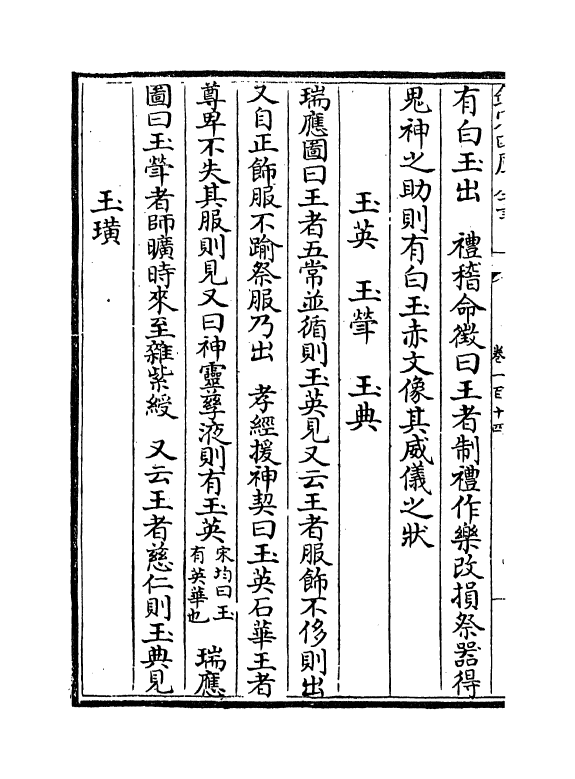 卷一百十四
有白玉出　禮稽命徵曰王者制禮作樂改損祭器得
鬼神之助則有白玉赤文像其威儀之狀
玉英　玉犖　玉典
瑞應圖曰王者五常並循則玉英見又云王者服飾不侈則出
又自正飾服不踰祭服乃出　孝經援神契曰玉英石華王者
尊卑不失其服則見又曰神靈孳液則有玉英宋均曰玉有英華也　瑞應
圖曰玉犖者師曠時來至雜紫綬　又云王者慈仁則玉典見
玉璜